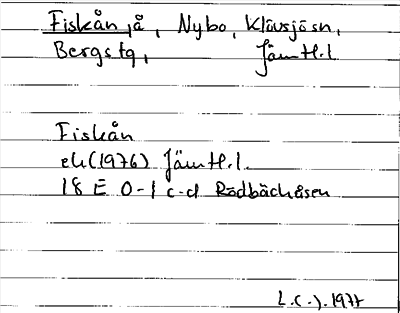 Fiskån, å, Nybo, Klövsjösn,
Bergstg, Jämtl.l.
Fiskån
ek (1976) Jämtl.l.
18 E 0-1 c-d Rödbäcksåsen
L.C.J. 1977